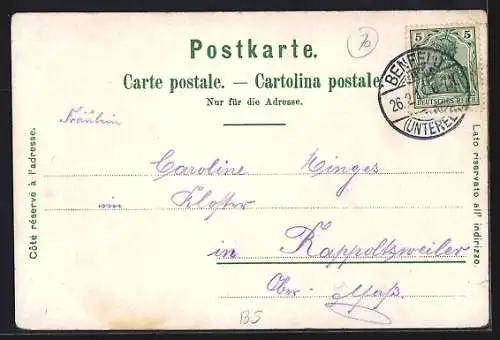 Postkarte.
Carte postale. — Cartolina postale
Nur für die Adresse.
70
5 5
DEUTSCHES REICH
BENFELD
26.2
(UNTEREL
Côté réservé à l'adresse.
Lato riservato all' indirizzo.
Fräulein
Caroline Hinges
im Kloster
in Rappoltsweiler
Ober-Elsaß.
BS